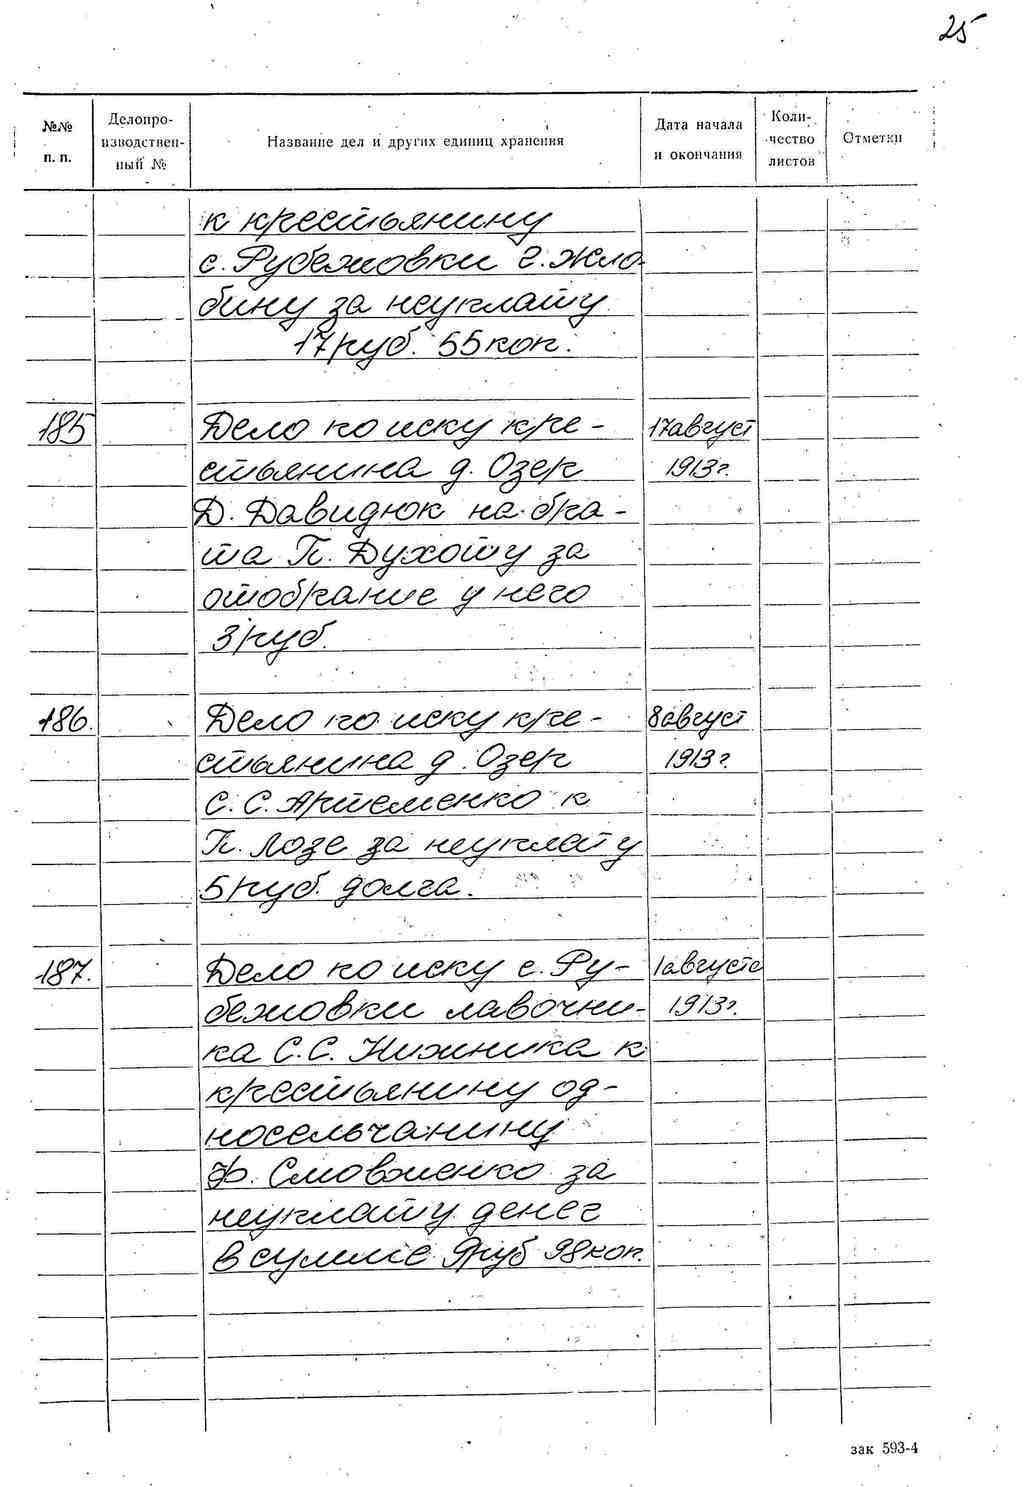 25
№№
п. п.
Делопро-
изводствен-
ный №
Название дел и других единиц хранения
Дата начала
и окончания
Коли-
чество
листов
Отметки
к крестьянину
с. Рубежовки г. Жло
бину за неуплату
17 руб. 55 коп.
185
Дело по иску кре-
17 август
стьянина д. Озер
1913 г.
Д. Давидюк на бра-
та П. Духоту за
отобрание у него
3 руб.
186.
Дело по иску кре-
8 август
стьянина д. Озер
1913 г.
С. С. Артеменко к
П. Лозе за неуплату
5 руб. долга.
187.
Дело по иску с. Ру-
1 августа
бежовки лавочни-
1913 г.
ка С. С. Нижника к
крестьянину од-
носельчанину
Ф. за
неуплату денег
в сумме 9 руб 98 коп.
зак 593-4